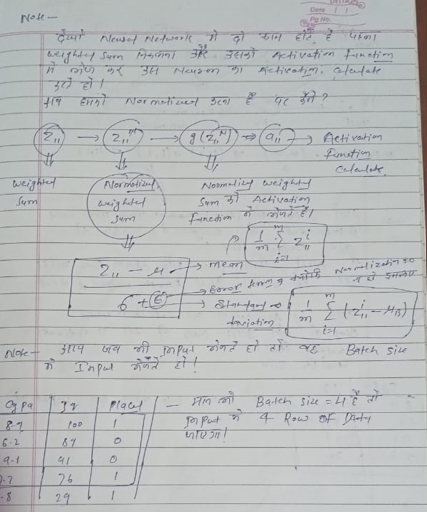 Date
Pg No.
Note -
देखो Neural Network में दो चीज होती है पहला
Weighted Sum निकालना और उसको Activation function
में भेज कर उस Neuron का Activation Calculate
करते हो।
अब हमको Normalized करना है पर कैसे?
Z₁₁ → Z₁₁ᴺ → g(Z₁₁ᴺ) → a₁₁ → Activation
function
Calculate
Weighted
Sum
Normalized
Weighted
Sum
Normalized Weighted
Sum को Activation
function में भेजते हैं।
1/m Σ_{i=1}^{m} Z₁₁ⁱ
Z₁₁ - μ → mean
σ + ε → Error term
→ Standard
deviation
1/m Σ_{i=1}^{m} (Z₁₁ⁱ - μ_B)
Note - आप जब भी Input भेजते हो तो वह Batch size
में Input भेजते हो!
Cgpa Iq Placed
8.7 100 1
6.2 87 0
9.1 91 0
7.7 76 1
.8 29 1
- मान लो Batch size = 4 है तो
Input में 4 Row of Data
जाएगा!